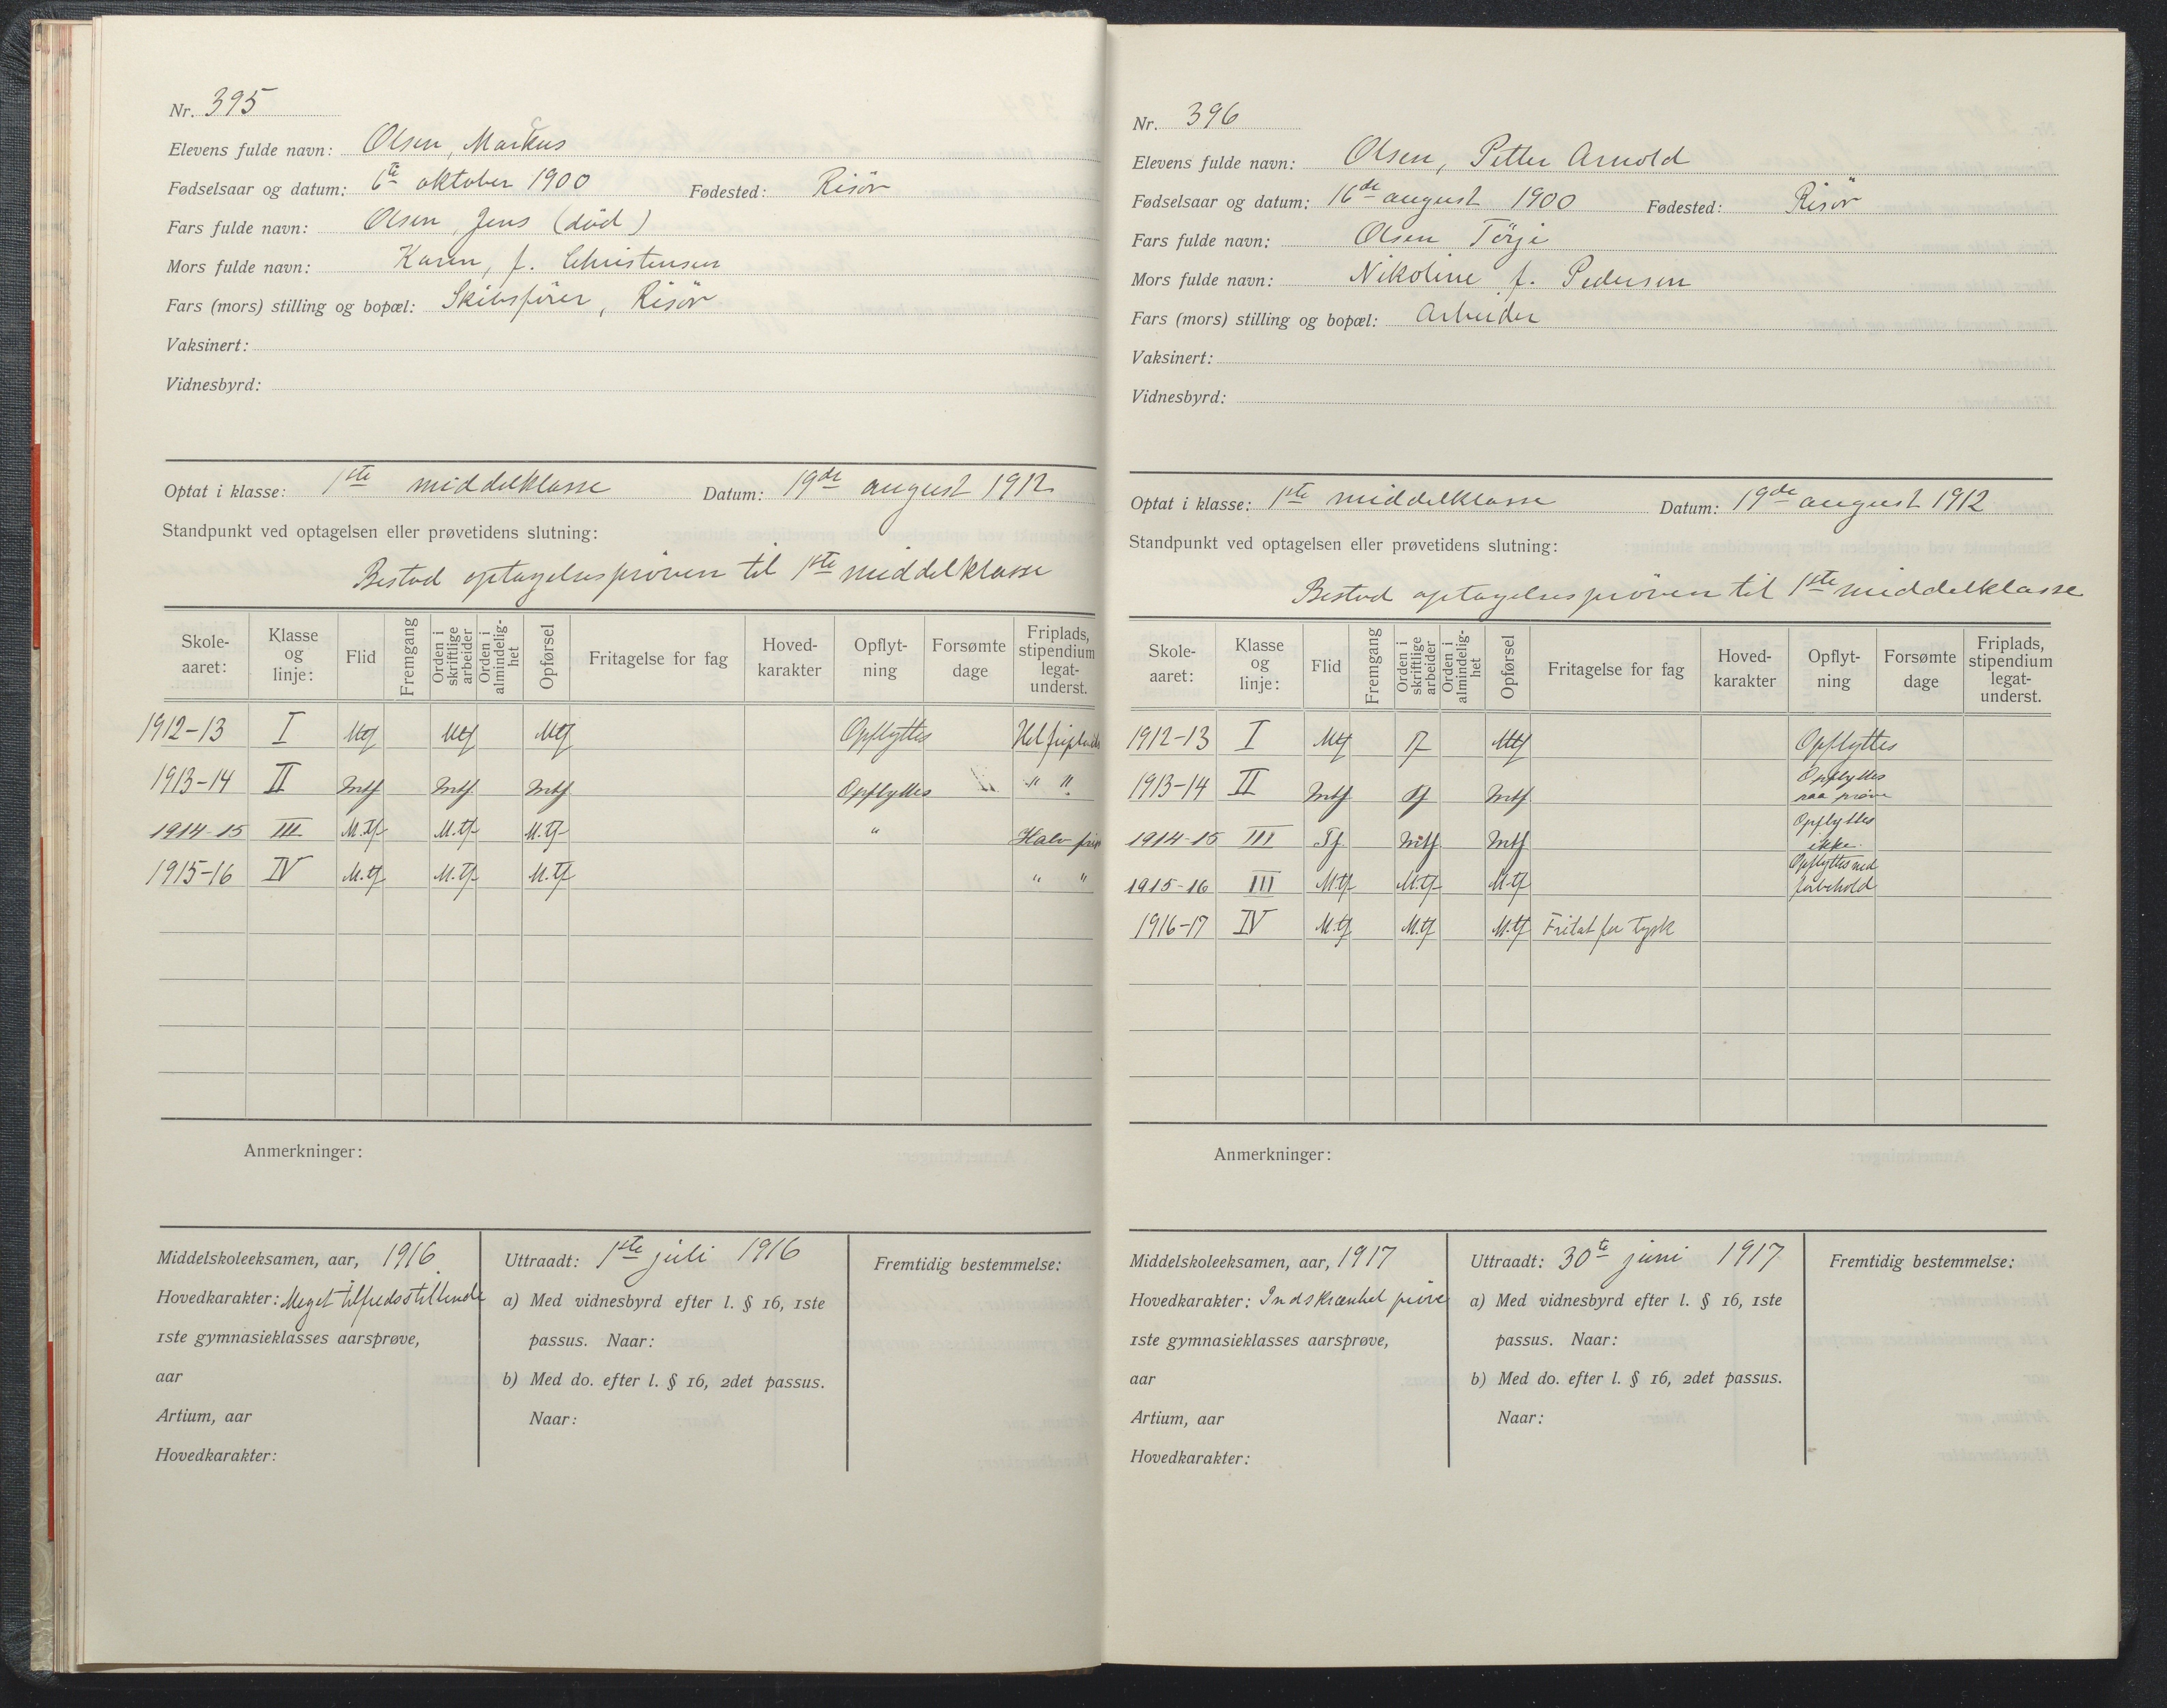 Nr. 395
Elevens fulde navn: Olsen, Markus
Fødselsaar og datum: 6te oktober 1900 Fødested: Risör
Fars fulde navn: Olsen, Jens (död)
Mors fulde navn: Karen, f. Christensen
Fars (mors) stilling og bopæl: Skibsförer, Risör
Vaksinert:
Vidnesbyrd:
Optat i klasse: 1ste middelklasse Datum: 19de august 1912
Standpunkt ved optagelsen eller prøvetidens slutning:
Bestod optagelsespröven til 1ste middelklasse
Skole-aaret: Klasse og linje: Flid Fremgang Orden i skriftlige arbeider Orden i almindelig-het Opførsel Fritagelse for fag Hoved-karakter Opflyt-ning Forsømte dage Friplads, stipendium legat-underst.
1912-13 I Mtf Mtf Mtf Opflyttes Hel friplads
1913-14 II Mtf Mtf Mtf Opflyttes " "
1914-15 III M.tf M.tf M.tf " Halv
1915-16 IV M.tf M.tf M.tf " "
Anmerkninger:
Middelskoleeksamen, aar, 1916.
Hovedkarakter: Meget tilfredsstillende
1ste gymnasieklasses aarsprøve,
aar
Artium, aar
Hovedkarakter:
Uttraadt: 1ste juli 1916
a) Med vidnesbyrd efter l. § 16, 1ste
passus. Naar:
b) Med do. efter l. § 16, 2det passus.
Naar:
Fremtidig bestemmelse:
Nr. 396
Elevens fulde navn: Olsen, Petter Arnold
Fødselsaar og datum: 16de august 1900 Fødested: Risör
Fars fulde navn: Olsen Törje
Mors fulde navn: Nikoline f. Pedersen
Fars (mors) stilling og bopæl: Arbeider
Vaksinert:
Vidnesbyrd:
Optat i klasse: 1ste middelklasse Datum: 19de august 1912
Standpunkt ved optagelsen eller prøvetidens slutning:
Bestod optagelsespröven til 1ste middelklasse
Skole-aaret: Klasse og linje: Flid Fremgang Orden i skriftlige arbeider Orden i almindelig-het Opførsel Fritagelse for fag Hoved-karakter Opflyt-ning Forsømte dage Friplads, stipendium legat-underst.
1912-13 I Mtf Tf Mtf Opflyttes
1913-14 II Mtf Tf Mtf Opflyttes paa prøve
1914-15 III Tf. Mtf Mtf Opflyttes ikke.
1915-16 III M.tf M.tf M.tf Opflyttes med forbehold
1916-17 IV M.tf M.tf M.tf Fritat for tysk
Anmerkninger:
Middelskoleeksamen, aar, 1917
Hovedkarakter: Indskrænket prøve
1ste gymnasieklasses aarsprøve,
aar
Artium, aar
Hovedkarakter:
Uttraadt: 30te juni 1917
a) Med vidnesbyrd efter l. § 16, 1ste
passus. Naar:
b) Med do. efter l. § 16, 2det passus.
Naar:
Fremtidig bestemmelse: